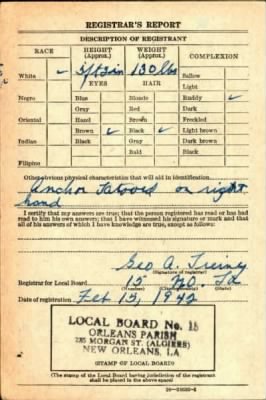 REGISTRAR'S REPORT
DESCRIPTION OF REGISTRANT
RACE HEIGHT (Approx.) WEIGHT (Approx.) COMPLEXION
White ✓ 5 ft 3 in 130 lbs Sallow
EYES HAIR Light
Negro Blue Blonde Ruddy ✓
Gray Red Dark
Oriental Hazel Brown Freckled
Brown ✓ Black ✓ Light brown
Indian Black Gray Dark brown
Bald Black
Filipino
Other obvious physical characteristics that will aid in identification
Anchor Tatooed on right
hand
I certify that my answers are true; that the person registered has read or has had
read to him his own answers; that I have witnessed his signature or mark and that
all of his answers of which I have knowledge are true, except as follows:
Geo A.
(Signature of registrar)
Registrar for Local Board 15 N.O. La
(Number) (City or county) (State)
Date of registration Feb 15, 1942
LOCAL BOARD No. 15
ORLEANS PARISH
235 MORGAN ST. (ALGIERS)
NEW ORLEANS, LA
(STAMP OF LOCAL BOARD)
(The stamp of the Local Board having jurisdiction of the registrant
shall be placed in the above space)